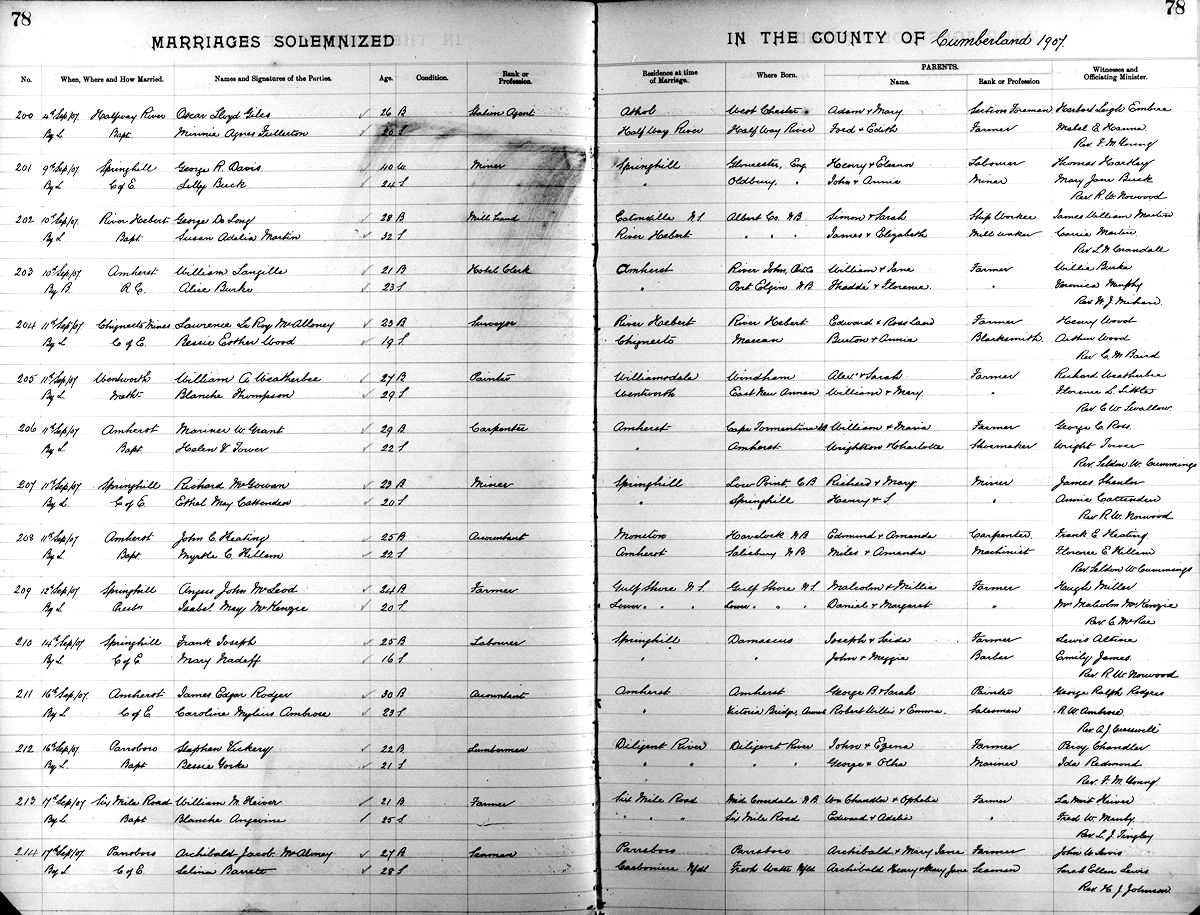 78
78
MARRIAGES SOLEMNIZED IN THE COUNTY OF Cumberland 1907.
No. When, Where and How Married. Names and Signatures of the Parties. Age. Condition. Rank or Profession. Residence at time of Marriage. Where Born. PARENTS. Name. Rank or Profession Witnesses and Officiating Minister.
200 4th Sep/07 Halfway River Oscar Lloyd Giles 26 B Station Agent Athol West Chester Adam & Mary Section Foreman Harbard Leigh Embree
By L Bapt. Minnie Agnes Fullerton 20 S Half Way River Half Way River Fred & Edith Farmer Mabel E Hanna
Rev. F. M. Young
201 9th Sep/07 Springhill George R. Davis 40 W Miner Springhill Gloucester, Eng Henry & Eleanor Labourer Thomas Hartley
By L C of E. Lilly Buck 24 S " Oldbury " John & Annie Miner Mary Jane Buck
Rev. R. W. Norwood
202 10th Sep/07 River Hebert George De Long 28 B Mill hand Eatonville N.S. Albert Co. N.B Simon & Sarah Ship Worker James William Martin
By L Bapt Susan Adelia Martin 32 S River Hebert " " " James & Elizabeth Mill Carrie Martin
Rev. L. M. Crandall
203 10th Sep/07 Amherst William Langille 21 B Hotel Clerk Amherst River John, William & Jane Farmer Willie Burke
By B R.C. Alice Burke 23 S " Port Elgin N.B Thadde & Florence " Veronica Murphy
Rev. W. J. Mihan
204 11th Sep/07 Chignecto Mines Lawrence Le Roy McAloney 23 B Surveyor River Hebert River Hebert Edward & Rossland Farmer Henry Wood
By L C of E. Bessie Esther Wood 19 S Chignecto Maccan Burton & Annie Blacksmith Arthur Wood
Rev. C. M Baird
205 11th Sep/07 Wentworth William A. Weatherbee 27 B Painter Williamsdale Windham Alexr & Sarah Farmer Richard Weatherbie
By L Meth Blanche Thompson 29 S Wentworth East New Annan William & Mary " Florence L. Little
Rev. C. W. Swallow
206 11th Sep/07 Amherst Mariner W. Grant 29 B Carpenter Amherst Cape Tormentine N.B William & Maria Farmer George C. Ross
By L Bapt. Helen V. Tower 22 S " Amherst Wrightson & Charlotte Shoemaker Wright Tower
Rev. Seldon W. Cummings
207 11th Sep/07 Springhill Richard McGowan 23 B Miner Springhill Low Point, C.B Richard & Mary Miner James Sheular
By L C of E. Ethel May Cattenden 20 S " Springhill Henry & S " Annie Cattenden
Rev R. W. Norwood
208 11th Sep/07 Amherst John C. Keating 25 B Accountant Moncton Havelock N.B Edmund & Amanda Carpenter Frank E. Keating
By L Bapt Myrtle C Killam 22 S Amherst Salisbury N.B Miles & Amanda Machinist Florence E Killam
Rev. Seldon W Cummings
209 12th Sep/07 Springhill Angus John McLeod 24 B Farmer Gulf Shore N.S. Gulf Shore N.S. Malcolm & Millie Farmer Hugh Miller
By L Isabel May McKenzie 20 S Lower " " " Lower " " " Daniel & Margaret " Mr Malcolm McKenzie
Rev. C McRae
210 14th Sep/07 Springhill Frank Joseph 25 B Labourer Springhill Damascus Joseph & Saida Farmer Lewis Attina
By L C of E Mary Nadeff 16 S " " John & Meggie Barber Emily James
Rev R. W. Norwood
211 16th Sep/07 Amherst James Edgar Rodger 30 B Accountant Amherst Amherst George B & Sarah Painter George Ralph Rodgers
By L. C of E Caroline Mylius Ambrose 23 S " Victoria Bridge, Robert Willis & Emma Salesman R. W. Ambrose
Rev. A. J. Cresswell
212 16th Sep/07 Parrsboro Stephen Vickery 22 B Lumberman Diligent River Diligent River John & Ezena Farmer Percy Chandler
By L. Bapt Bessie Yorke 21 S " " " " George & Olha Mariner Ida Redmond
Rev. F. M. Young
213 17th Sep/07 Six Mile Road William M. Heiver 21 B Farmer Six Mile Road Mid. Coverdale N.B. Wm Chandler & Ophelia Farmer La Mont Heiver
By L Bapt Blanche Angevine 25 S " " " Six Mile Road Edward & Adelia " Fred W. Munby
Rev L. J. Tingley
214 17th Sep/07 Parrsboro Archibald Jacob McAloney 27 B Seaman Parrsboro Parrsboro Archibald & Mary Jane Farmer John W Lewis
By L. C of E Selina Barrett 28 S Carboniere Nfld Fresh Water Nfld Archibald Henry & Mary Jane Seaman Sarah Ellen Lewis
Rev. H. J. Johnson